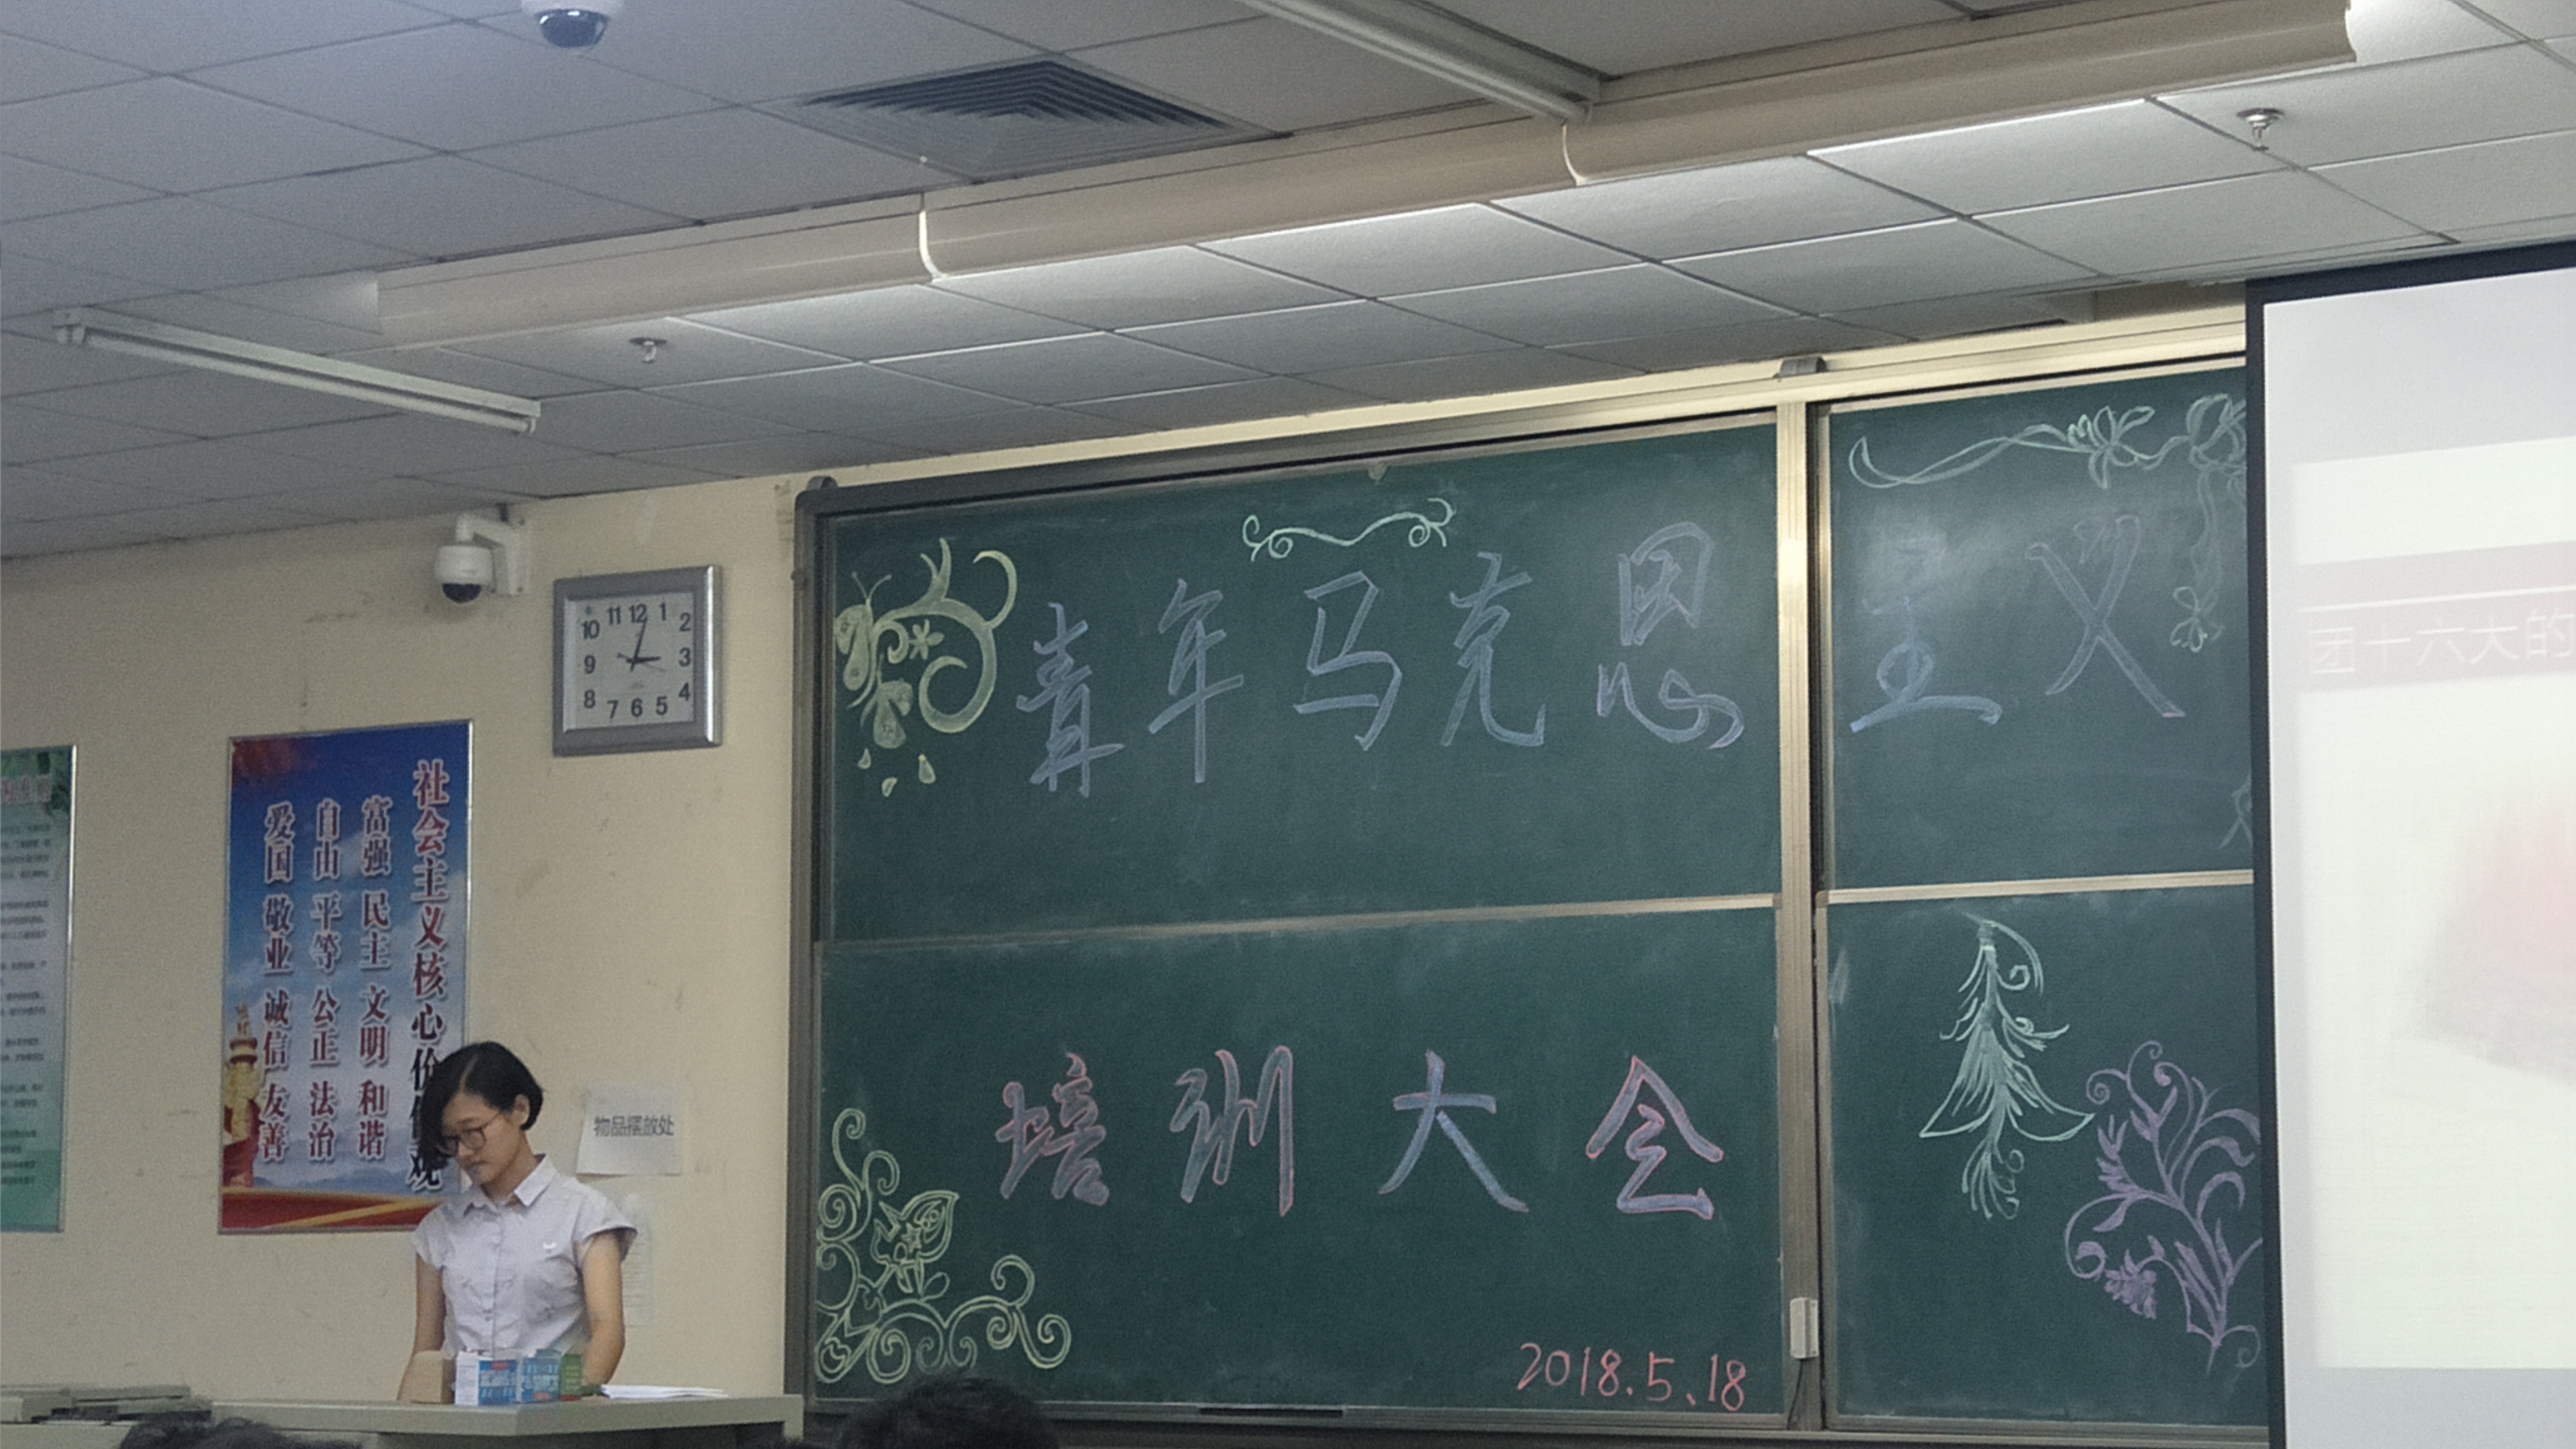 青年马克思主义
培训大会
2018.5.18
社会主义核心价值观
富强 民主 文明 和谐
自由 平等 公正 法治
爱国 敬业 诚信 友善
物品摆放处
团十六大的
12
1
2
3
4
5
6
7
8
9
10
11